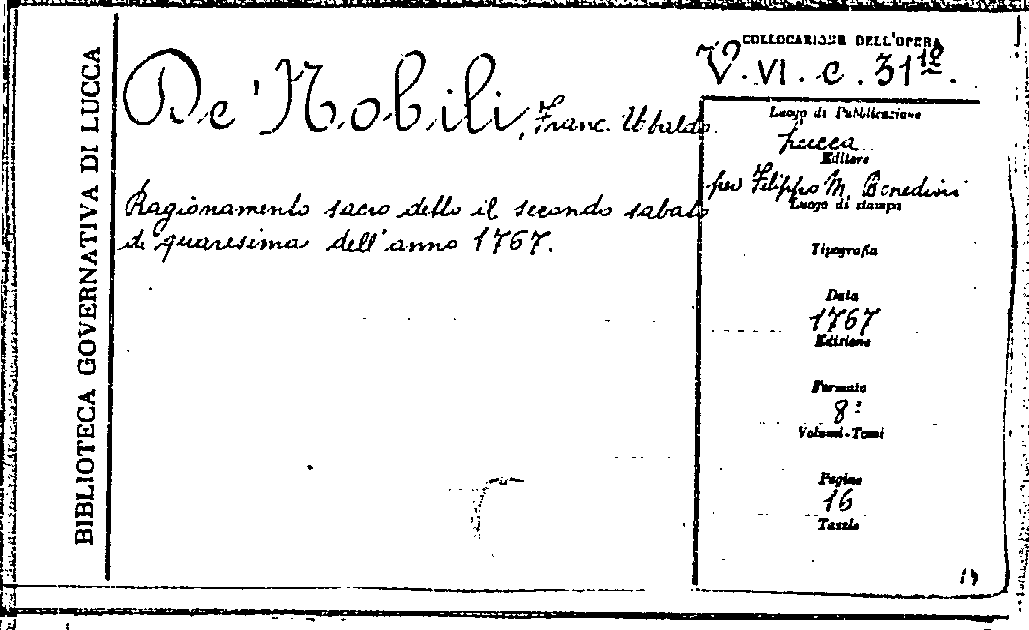 BIBLIOTECA GOVERNATIVA DI LUCCA
De' Nobili, Franc. Ubaldo.
Ragionamento sacro detto il secondo sabato
di quaresima dell'anno 1767.
COLLOCAZIONE DELL'OPERA
V. VI. c. 31 10.
Luogo di Pubblicazione
Lucca
Editore
per Filippo M. Benedini
Luogo di stampa
Tipografia
Data
1767
Edizione
Formato
8º
Volumi-Tomi
Pagine
16
Tavole